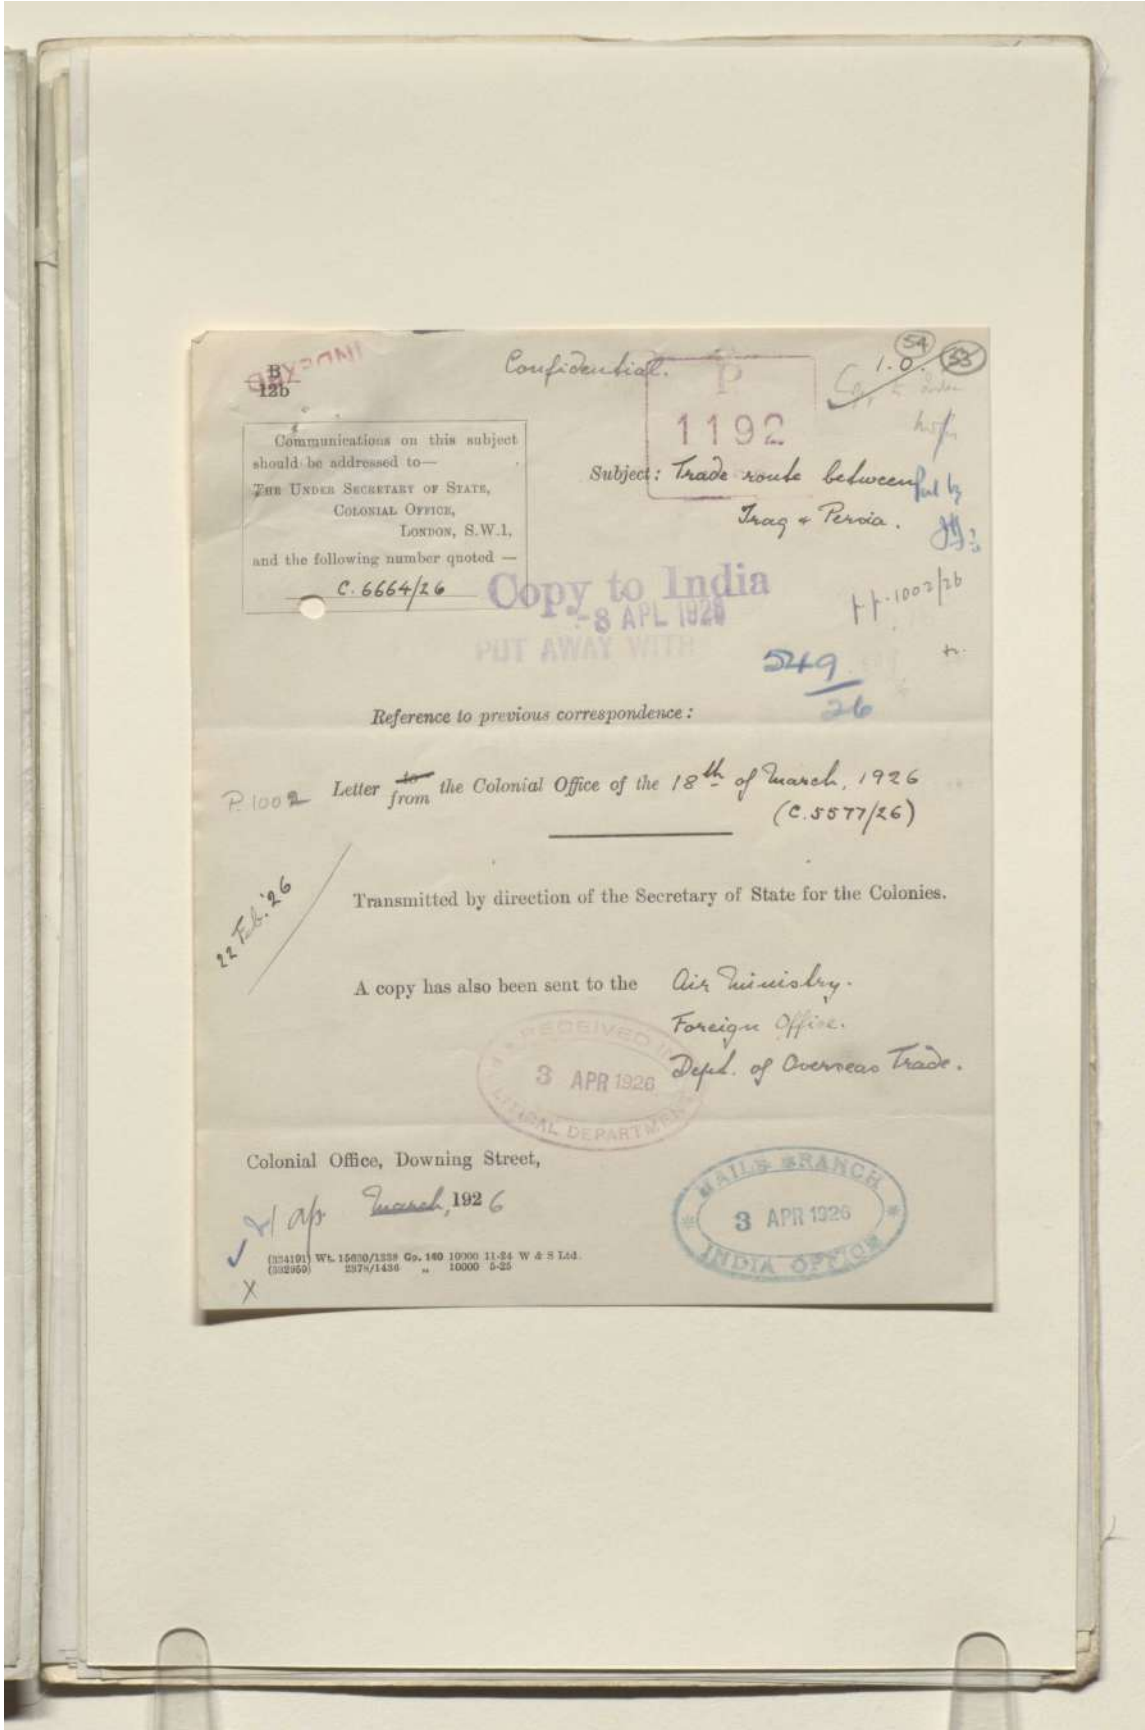 INDEXED
B
12b
Confidential.
54
I.O.
53
P
1192
Communications on this subject
should be addressed to—
THE UNDER SECRETARY OF STATE,
COLONIAL OFFICE,
LONDON, S.W.1,
and the following number quoted —
C. 6664/26
Subject: Trade route between
Iraq & Persia.
Copy to India
-8 APL 1926
PUT AWAY WITH
p.p. 1002/26
549
26
Reference to previous correspondence:
P. 1002
Letter to from the Colonial Office of the 18th of March, 1926
(C. 5577/26)
22 Feb. '26
Transmitted by direction of the Secretary of State for the Colonies.
A copy has also been sent to the Air Ministry.
Foreign Office.
Dept. of Overseas Trade.
RECEIVED IN
3 APR 1926
POLITICAL DEPARTMENT
Colonial Office, Downing Street,
March, 1926
MAILS BRANCH
3 APR 1926
INDIA OFFICE
(334191) Wt. 15630/1338 Gp. 140 10000 11-24 W & S Ltd.
(332959) 2378/1436 „ 10000 5-25
X